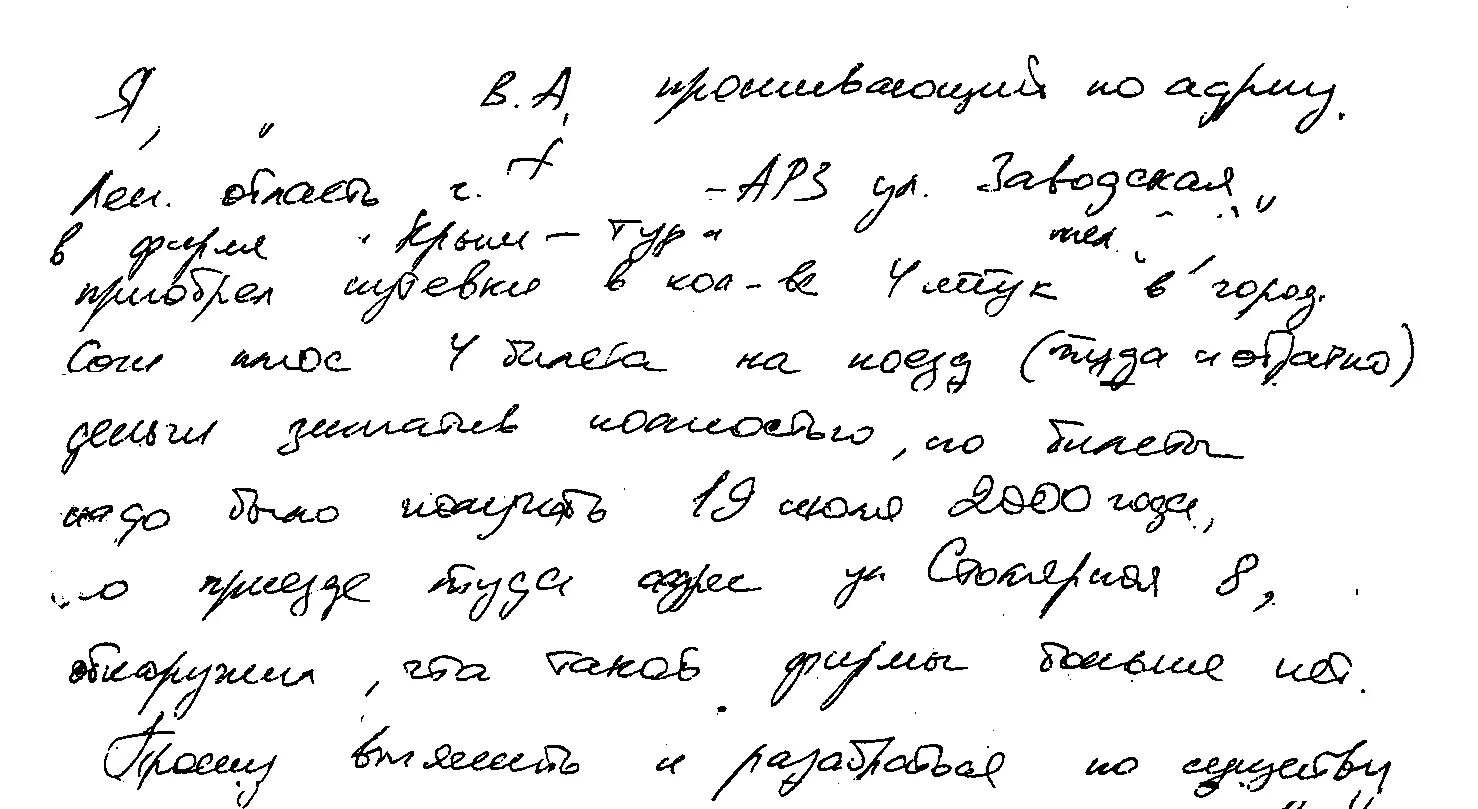 Я, В.А, проживающий по адресу.
Лен. область г. -АРЗ ул. Заводская,
в фирме "Крым-Тур" тел.
приобрел путевки в кол-ве 4 штук в город.
Сочи плюс 4 билета на поезд (туда и обратно)
деньги заплатив полностью, но билеты
надо было получить 19 июля 2000 года,
по приезде туда адрес ул Столярная 8,
обнаружил, что такой фирмы больше нет.
Прошу выяснить и разобраться по существу